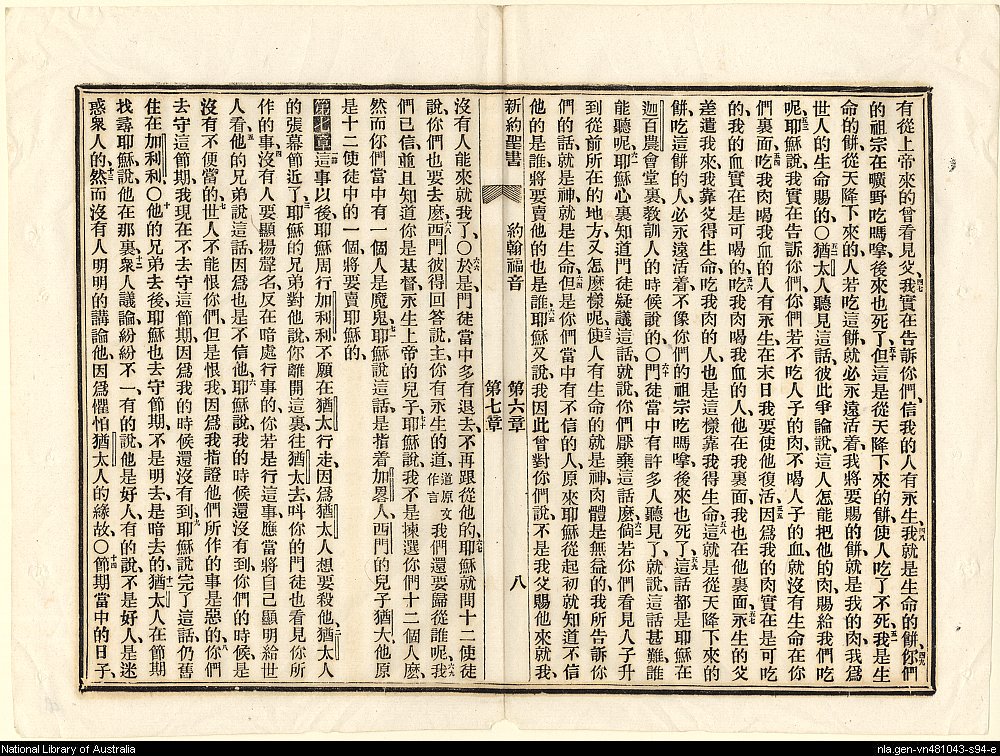 有從上帝來的曾看見父我實在告訴你們信我的人有永生我就是生命的餅你們
的祖宗在曠野吃嗎嗱後來也死了但這是從天降下來的餅使人吃了不死我是生
命的餅從天降下來的人若吃這餅就必永遠活着我將要賜的餅就是我的肉我爲
世人的生命賜的○猶太人聽見這話彼此爭論說這人怎能把他的肉賜給我們吃
呢耶穌說我實在告訴你們你們若不吃人子的肉不喝人子的血就沒有生命在你
們裏面吃我肉喝我血的人有永生在末日我要使他復活因爲我的肉實在是可吃
的我的血實在是可喝的吃我肉喝我血的人他在我裏面我也在他裏面永生的父
差遣我來我靠父得生命吃我肉的人也是這樣靠我得生命這就是從天降下來的
餅吃這餅的人必永遠活着不像你們的祖宗吃嗎嗱後來也死了這話都是耶穌在
迦百農會堂裏教訓人的時候說的○門徒當中有許多人聽見了就說這話甚難誰
能聽呢耶穌心裏知道門徒疑議這話就說你們厭棄這話麽倘若你們看見人子升
到從前所在的地方又怎麽樣呢使人有生命的就是神肉體是無益的我所告訴你
們的話就是神就是生命但是你們當中有不信的人原來耶穌從起初就知道不信
他的是誰將要賣他的也是誰耶穌又說我因此曾對你們說不是我父賜他來就我
新約聖書 約翰福音 第六章 八
第七章
沒有人能來就我了○於是門徒當中多有退去不再跟從他的耶穌就問十二使徒
說你們也要去麽西門彼得回答說主你有永生的道道原文作言我們還要歸從誰呢我
們已信並且知道你是基督永生上帝的兒子耶穌說我不是揀選你們十二個人麽
然而你們當中有一個人是魔鬼耶穌說這話是指着加畧人西門的兒子猶大他原
是十二使徒中的一個將要賣耶穌的
第七章這事以後耶穌周行加利利不願在猶太行走因爲猶太人想要殺他猶太人
的張幕節近了耶穌的兄弟對他說你離開這裏往猶太去呌你的門徒也看見你所
作的事沒有人要顯揚聲名反在暗處行事的你若是行這事應當將自己顯明給世
人看他的兄弟說這話因爲也是不信他耶穌說我的時候還沒有到你們的時候是
沒有不便當的世人不能恨你們但是恨我因爲我指證他們所作的事是惡的你們
去守這節期我現在不去守這節期因爲我的時候還沒有到耶穌說完了這話仍舊
住在加利利○他的兄弟去後耶穌也去守節期不是明去是暗去的猶太人在節期
找尋耶穌說他在那裏衆人議論紛紛不一有的說他是好人有的說不是好人是迷
惑衆人的然而沒有人明明的講論他因爲懼怕猶太人的緣故○節期當中的日子
National Library of Australia
nla.gen-vn481043-s94-e